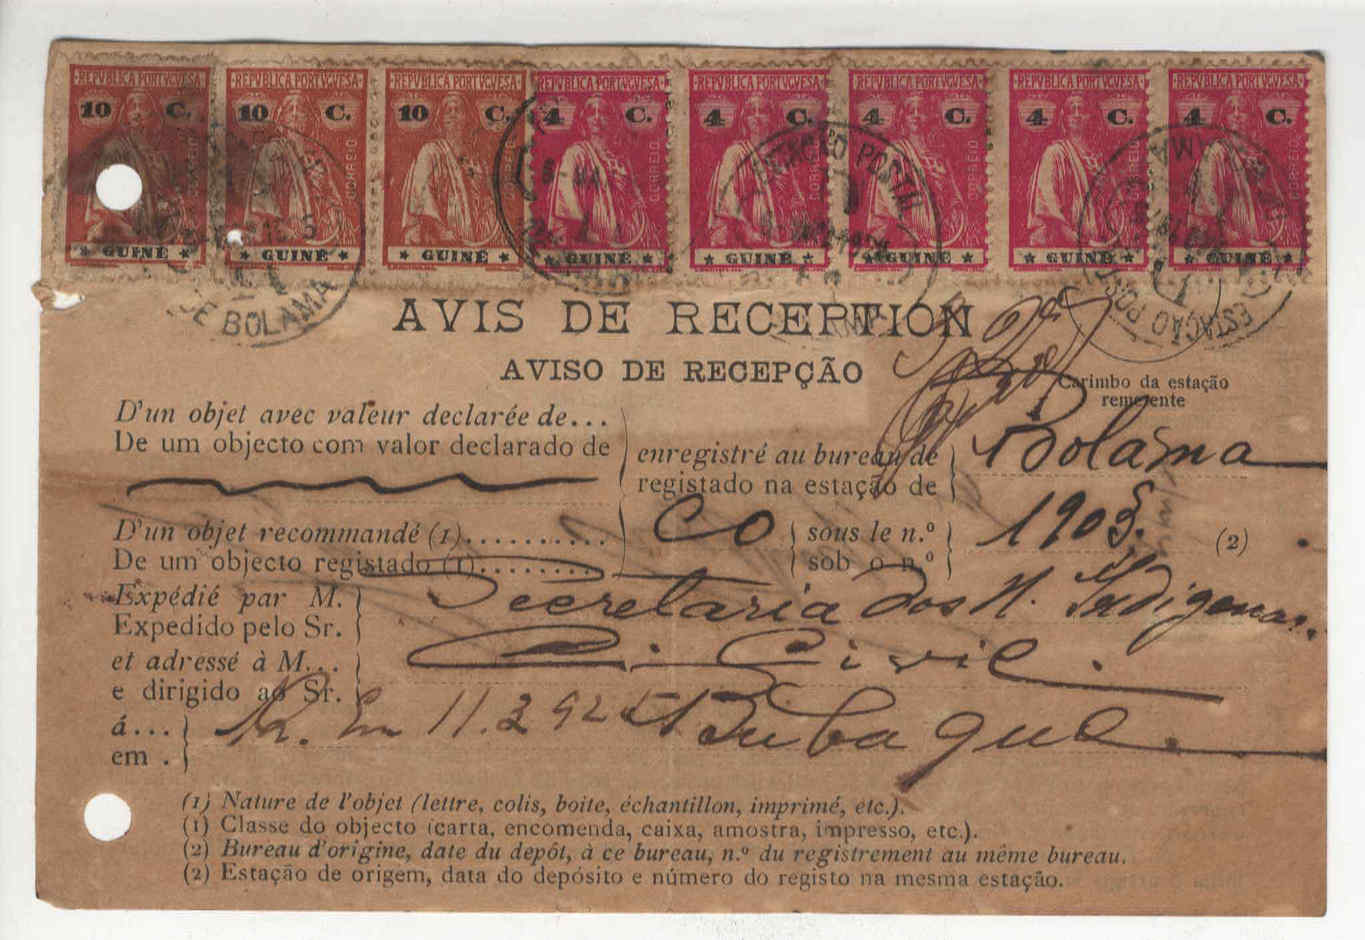 REPVBLICA PORTVGVESA REPVBLICA PORTVGVESA REPVBLICA PORTVGVESA REPVBLICA PORTVGVESA REPVBLICA PORTVGVESA REPVBLICA PORTVGVESA REPVBLICA PORTVGVESA REPVBLICA PORTVGVESA
10 C. 10 C. 10 C. 4 C. 4 C. 4 C. 4 C. 4 C.
CORREIO CORREIO CORREIO CORREIO CORREIO CORREIO CORREIO CORREIO
GUINÉ GUINÉ GUINÉ GUINÉ GUINÉ GUINÉ GUINÉ GUINÉ
DE BOLAMA
ESTAÇÃO POSTAL
ESTAÇÃO POSTAL
AVIS DE RECEPTION
AVISO DE RECEPÇÃO
Carimbo da estação
remetente
D'un objet avec valeur declarée de...
De um objecto com valor declarado de
enregistré au bureau de
registado na estação de
Bolama
D'un objet recommandé (1)..........
De um objecto registado (1)........
CO
sous le n.º
sob o n.º
1903. (2)
Expédié par M.
Expedido pelo Sr.
Secretaria dos N. Indigenas
et adressé à M...
e dirigido ao Sr.
C. Civil.
á...
em .
11.3.925 Bubaque.
(1) Nature de l'objet (lettre, colis, boite, échantillon, imprimé, etc.).
(1) Classe do objecto (carta, encomenda, caixa, amostra, impresso, etc.).
(2) Bureau d'origine, date du depót, à ce bureau, n.º du registrement au même bureau.
(2) Estação de origem, data do depósito e número do registo na mesma estação.